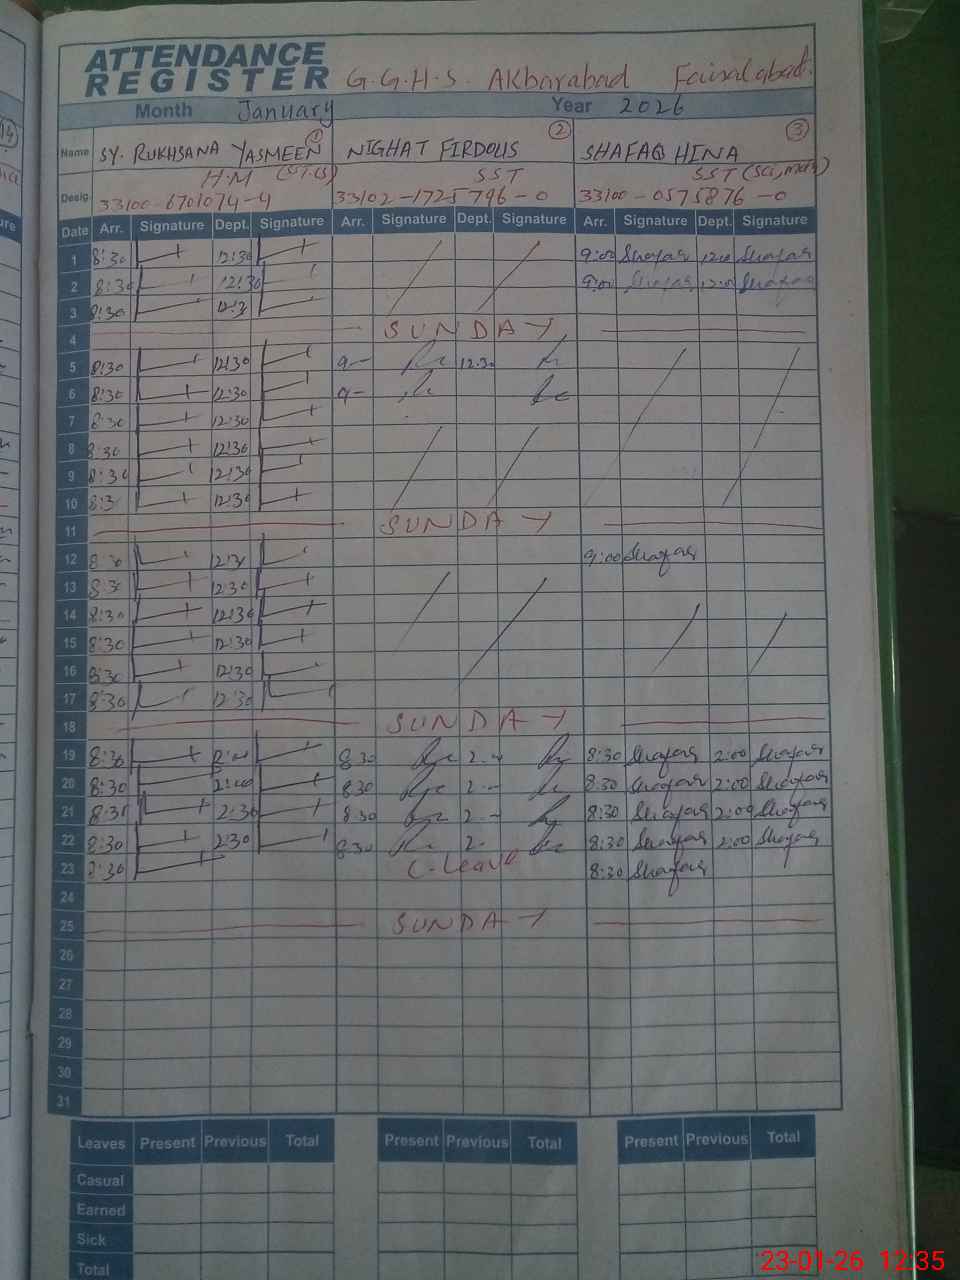 ATTENDANCE
REGISTER G.G.H.S. Akbarabad Faisalabad.
Month January Year 2026
Name SY. RUKHSANA YASMEEN 1 NIGHAT FIRDOUS 2 SHAFAQ HINA 3
H.M SST SST (Sci, math)
Desig. 33100-6701074-4 33102-1725796-0 33100-0575876-0
Date Arr. Signature Dept. Signature Arr. Signature Dept. Signature Arr. Signature Dept. Signature
1 8:30 12:30 9:00 Shafaq Shafaq
2 8:30 12:30 9:00 Shafaq Shafaq
3 8:30
4 SUNDAY
5 8:30 12:30 9- 12:30
6 8:30 12:30 9-
7 8:30 12:30
8 8:30 12:30
9 8:30 12:30
10 8:3 12:30
11 SUNDAY
12 8:30 9:00 Shafaq
13 8:30 12:30
14 8:30 12:30
15 8:30 12:30
16 8:30 12:30
17 8:30 12:30
18 SUNDAY
19 8:30 8:30 2 8:30 Shafaq 2:00 Shafaq
20 8:30 2:00 8:30 2 8:30 Shafaq 2:00 Shafaq
21 8:30 2:30 8:30 2 8:30 Shafaq 2:00 Shafaq
22 8:30 2:30 8:30 2 8:30 Shafaq 2:00 Shafaq
23 8:30 C-Leave 8:30 Shafaq
24
25 SUNDAY
26
27
28
29
30
31
Leaves Present Previous Total Present Previous Total Present Previous Total
Casual
Earned
Sick
Total
23-01-26 12:35